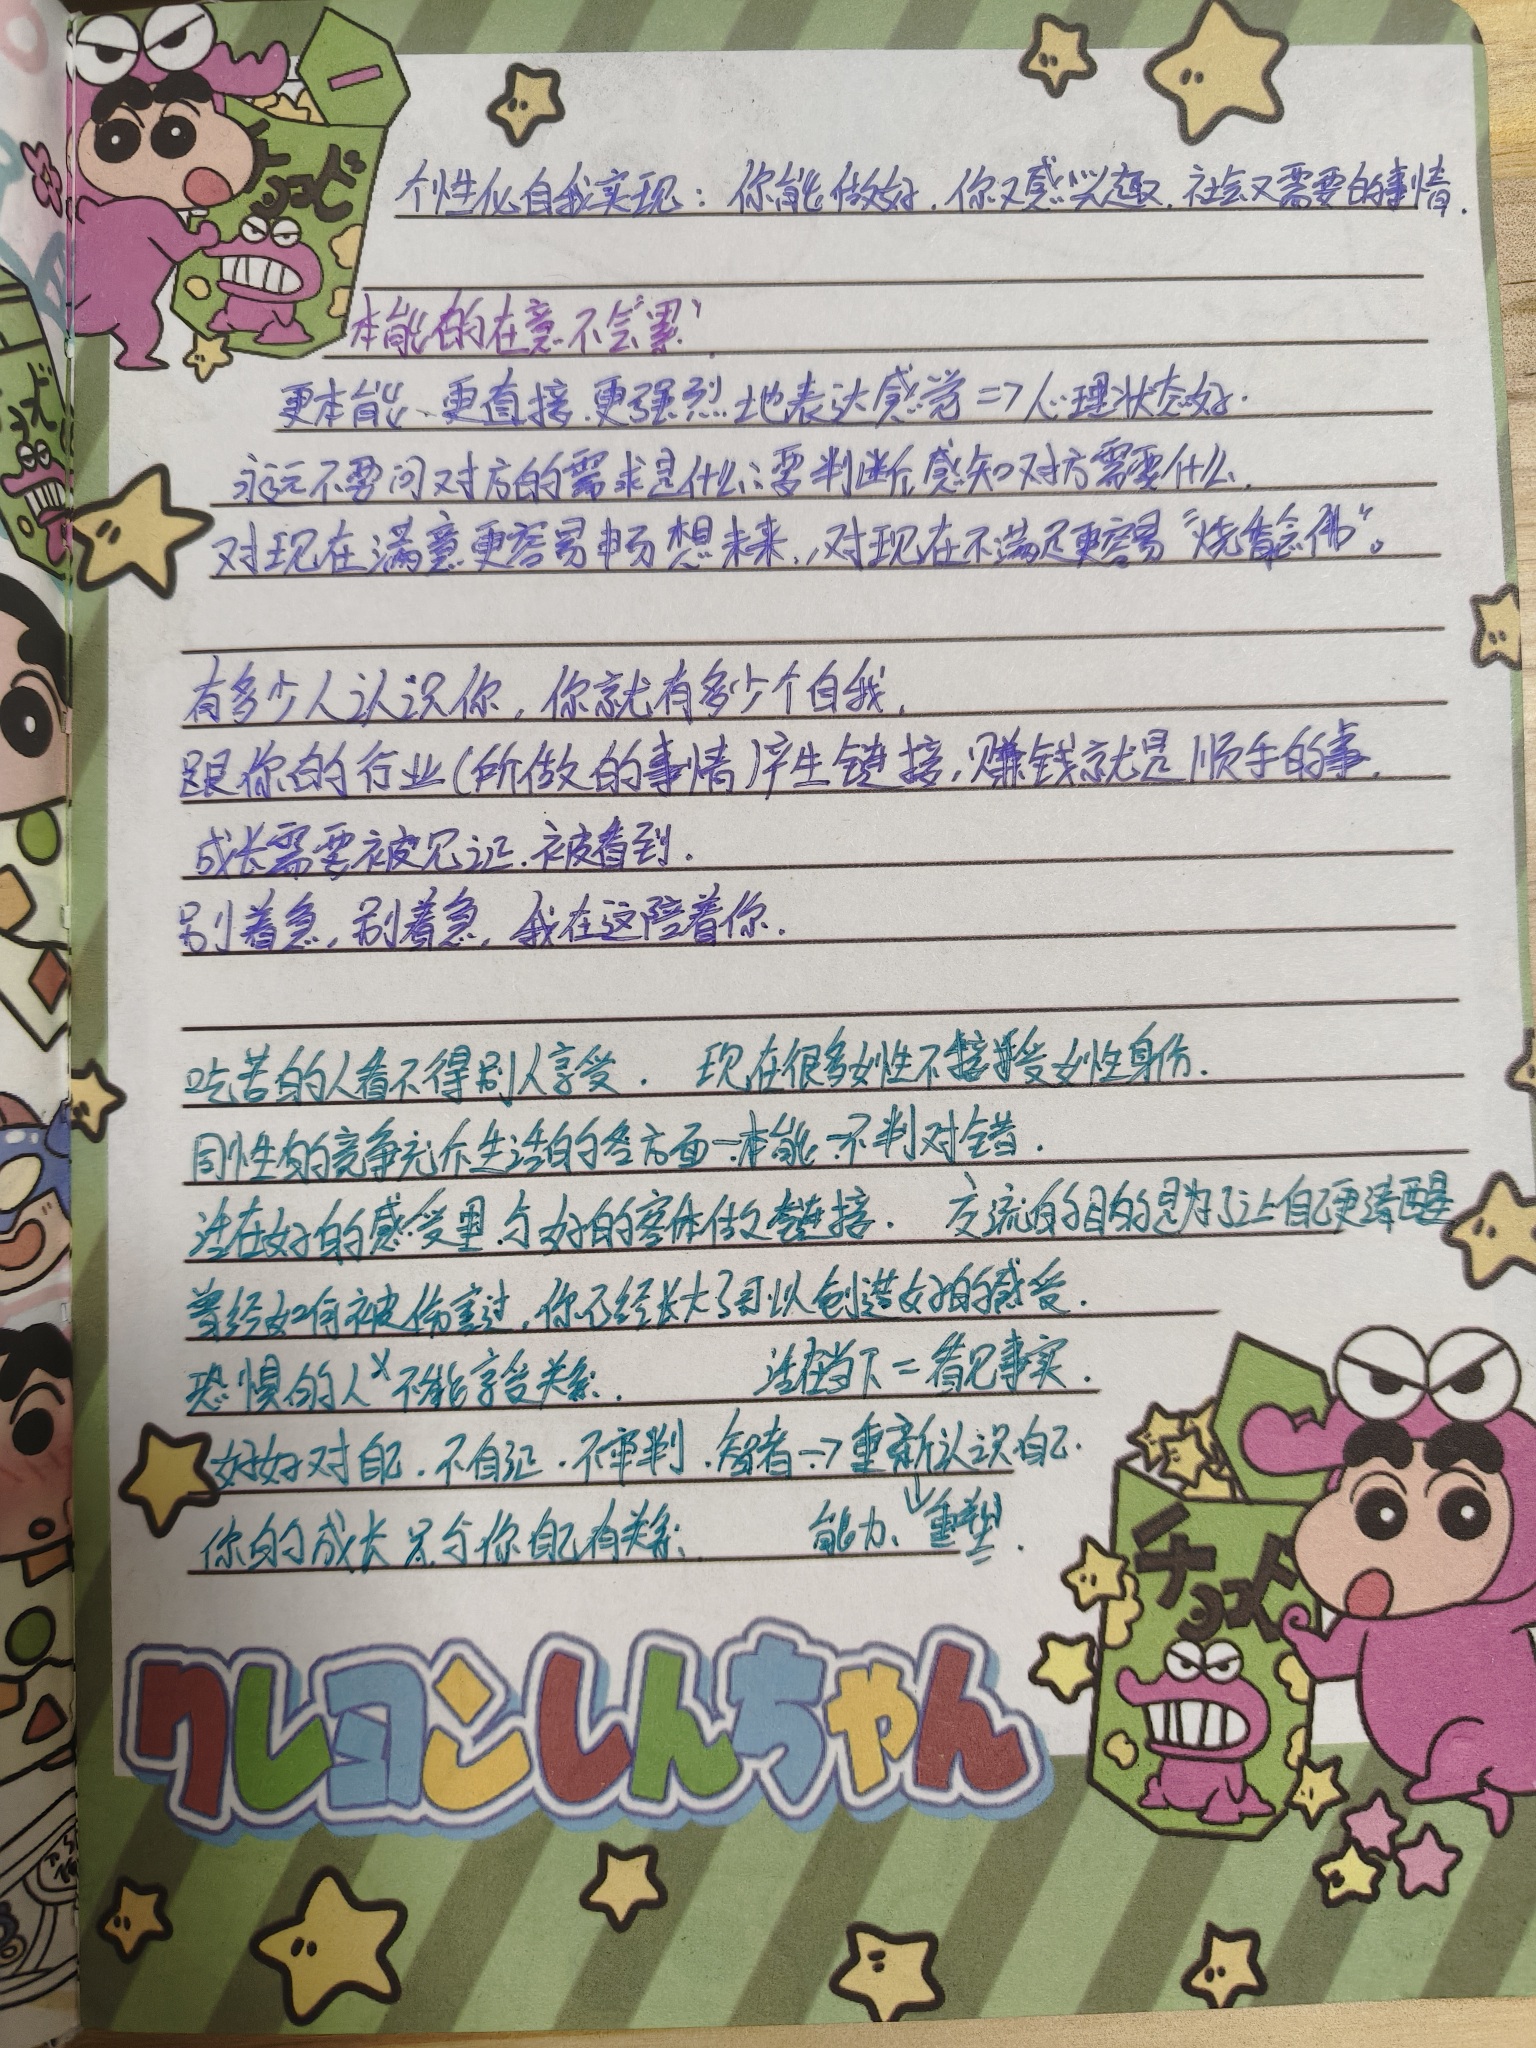 チョコビ
个性化自我实现：你能做好，你又感兴趣，社会又需要的事情.
本能的在意不会“累”
更本能、更直接、更强烈地表达感觉 => 心理状态好.
永远不要问对方的需求是什么；要判断、感知对方需要什么.
对现在满意更容易畅想未来，对现在不满足更容易“烧香念佛”。
有多少人认识你，你就有多少个自我.
跟你的行业(所做的事情)产生链接，赚钱就是顺手的事.
成长需要被见证、被看到.
别着急，别着急，我在这陪着你.
吃苦的人看不得别人享受. 现在很多女性不接受女性身份.
同性的竞争充斥生活的各方面—本能—不判对错.
活在好的感受里，与好的客体做链接. 交流的目的是为了让自己更清醒
曾经如何被伤害过，你已经长大了可以创造好的感受.
恐惧的人×不能享受关系. 活在当下=看见事实.
好好对自己. 不自证. 不审判. 智者—>重新认识自己.
你的成长只与你自己有关系. 能力、↓重塑.
チョコビ
クレヨンしんちゃん